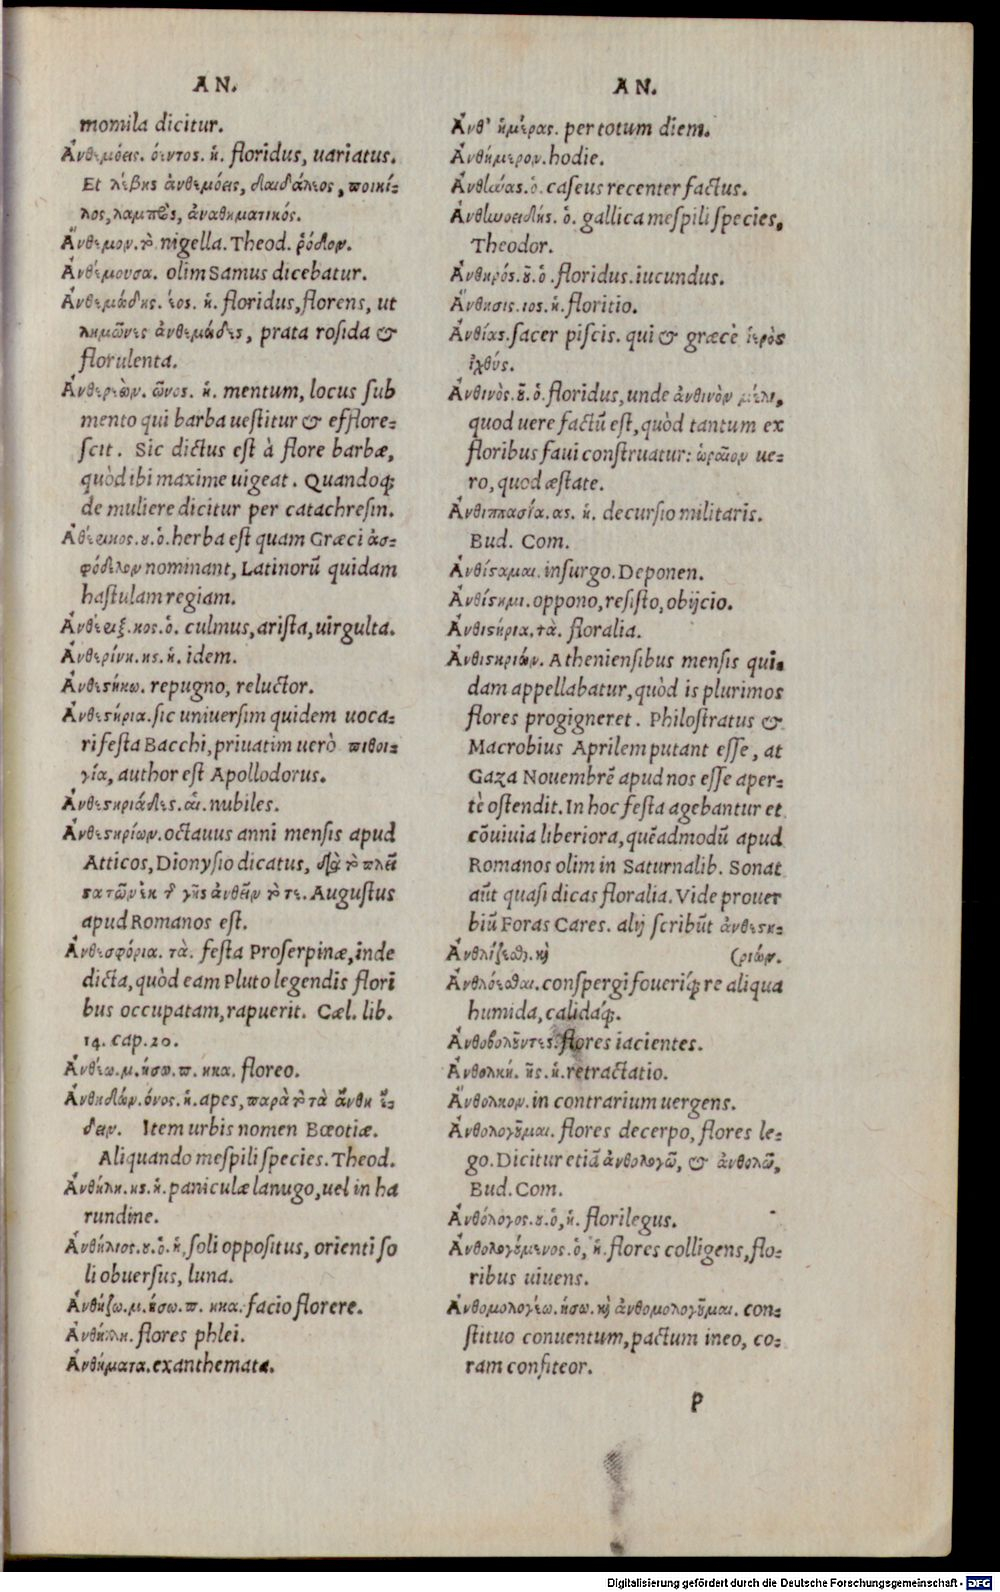 AN.
momila dicitur.
Ἀνθεμόεις. όεντος. ἡ. floridus, uariatus.
Et λέβης ἀνθεμόεις, δαιδάλεος, ποικί-
λος, λαμπρὸς, ἀναθηματικός.
Ἄνθεμον. τὸ nigella. Theod. ῥόδον.
Ἀνθέμουσα. olim Samus dicebatur.
Ἀνθεμώδης. έος. ἡ. floridus, florens, ut
λημῶνες ἀνθεμώδες, prata rosida &
florulenta.
Ἀνθερεὼν. ῶνος. ἡ. mentum, locus sub
mento qui barba uestitur & efflore-
scit. Sic dictus est à flore barbæ,
quòd ibi maxime uigeat. Quandoq;
de muliere dicitur per catachresin.
Ἀθέρικος. ου. ὁ. herba est quam Græci ἀσ-
φόδελον nominant, Latinorũ quidam
hastulam regiam.
Ἀνθέριξ. κος. ὁ. culmus, arista, uirgulta.
Ἀνθερίκη. κς. ἡ. idem.
Ἀνθεστήκω. repugno, reluctor.
Ἀνθεστήρια. sic uniuersim quidem uoca-
ri festa Bacchi, priuatim uerò πιθοι-
γία, author est Apollodorus.
Ἀνθεστηριάδες. αἱ. nubiles.
Ἀνθεστηρίων. octauus anni mensis apud
Atticos, Dionysio dicatus, διὰ τὸ πλεῖ
στα τῶν ἐκ τ͂ γῆς ἀνθεῖν τότε. Augustus
apud Romanos est.
Ἀνθεσφόρια. τὰ. festa Proserpinæ, inde
dicta, quòd eam Pluto legendis flori
bus occupatam, rapuerit. Cæl. lib.
14. cap. 20.
Ἀνθέω. μ. ήσω. π. ηκα. floreo.
Ἀνθηδών. όνος. ἡ. apes, παρὰ τὸ τὰ ἄνθη ἔ-
δειν. Item urbis nomen Bœotiæ.
Aliquando mespili species. Theod.
Ἀνθήλη. ης. ἡ. paniculæ lanugo, uel in ha
rundine.
Ἀνθήλιος. ου. ὁ. ἡ. soli oppositus, orienti so
li obuersus, luna.
Ἀνθήζω. μ. ήσω. π. ηκα. facio florere.
Ἀνθήλη. flores phlei.
Ἀνθήματα. exanthemata.
AN.
Ἀνθ' ἡμέρας. per totum diem.
Ἀνθήμερον. hodie.
Ἀνθηνας. ὁ. caseus recenter factus.
Ἀνθηνοειδής. ὁ. gallica mespili species,
Theodor.
Ἀνθηρός. οῦ. ὁ. floridus. iucundus.
Ἄνθησις. ιος. ἡ. floritio.
Ἀνθίας. sacer piscis. qui & græcè ἱερὸς
ἰχθύς.
Ἀνθινὸς. οῦ. ὁ. floridus, unde ἀνθινὸν μέλι,
quod uere factũ est, quòd tantum ex
floribus faui construatur: ὡραῖον ue-
ro, quod æstate.
Ἀνθιππασία. ας. ἡ. decursio militaris.
Bud. Com.
Ἀνθίσταμαι. insurgo. Deponen.
Ἀνθίστημι. oppono, resisto, obijcio.
Ἀνθιστήρια. τὰ. floralia.
Ἀνθιστηριών. Atheniensibus mensis qui-
dam appellabatur, quòd is plurimos
flores progigneret. Philostratus &
Macrobius Aprilem putant esse, at
Gaza Nouembrẽ apud nos esse aper-
tè ostendit. In hoc festa agebantur et
cõuiuia liberiora, quẽadmodũ apud
Romanos olim in Saturnalib. Sonat
aũt quasi dicas floralia. Vide prouer
biũ Foras Cares. alij scribũt ἀνθεστη-
Ἀνθλίζεσθ. καὶ (ριών.
Ἀνθλόεσθαι. conspergi foueriq; re aliqua
humida, calidaq;.
Ἀνθοβολοῦντες. flores iacientes.
Ἀνθολκή. ῆς. ἡ. retractatio.
Ἄνθολκον. in contrarium uergens.
Ἀνθολογοῦμαι. flores decerpo, flores le-
go. Dicitur etiã ἀνθολογῶ, & ἀνθολῶ,
Bud. Com.
Ἀνθόλογος. ου. ὁ, ἡ. florilegus.
Ἀνθολογούμενος. ὁ, ἡ. flores colligens, flo-
ribus uiuens.
Ἀνθομολογέω. ήσω. καὶ ἀνθομολογοῦμαι. con-
stituo conuentum, pactum ineo, co-
ram confiteor.
P
Digitalisierung gefördert durch die Deutsche Forschungsgemeinschaft - DFG